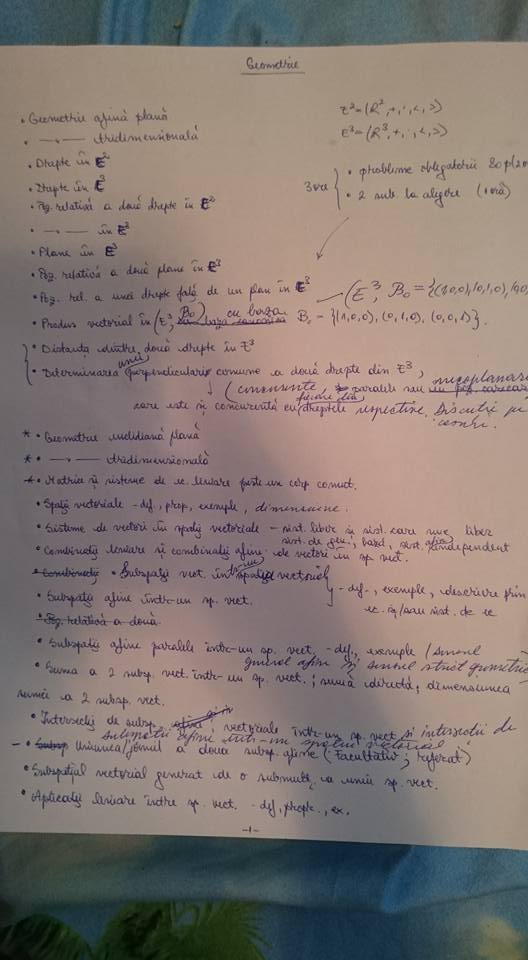 Geometrie
• Geometrie afină plană
• —„— tridimensională
E²=(R²,+,·,<,>)
E³=(R³,+,·,<,>)
• Drepte în E²
• Drepte în E³
• Poz. relativă a două drepte în E²
• —„— în E³
3 ore
• probleme obligatorii 80p/
• 2 sub. la alegere (1 oră)
• Plane în E³
• Poz. relativă a două plane în E³
• Poz. rel. a unei drepte față de un plan în E³
(E³, B₀ = {(1,0,0),(0,1,0),(0,0,
• Produs vectorial în (E³, B₀) cu baza B₀ = {(1,0,0), (0,1,0), (0,0,1)}.
• Distanța dintre două drepte în E³
• Determinarea unei perpendiculare comune a două drepte din E³,
(concurente, paralele sau necoplanare
care este și concurentă cu fiecare din dreptele respective. Discuție pe
cazuri.
* • Geometrie euclidiană plană
* • —„— tridimensională
* • Matrice și sisteme de ec. liniare peste un corp comut.
• Spații vectoriale - def, prop, exemple, dimensiune.
• Sisteme de vectori în spații vectoriale - sist. liber și sist. care nu e liber
sist. de gen., bază, sist. afin independent
• Combinații liniare și combinații afine de vectori în sp. vect.
Combinații • Subspații vect. într-un spațiu vectorial
• Subspații afine într-un sp. vect.
- def., exemple, descriere prin
ec. și/sau sist. de ec
• Poz. relativă a două
• Subspații afine paralele într-un sp. vect. - def., exemple (sensul
general afin și sensul strict geometric
• Suma a 2 subsp. vect. într-un sp. vect.; sumă directă, dimensiunea
sumei a 2 subsp. vect.
• Intersecții de subsp. vectoriale într-un sp. vect. și intersecții de
subspații afine într-un spațiu vectorial
- • Subsp Uniunea/joinul a două subsp. afine (Facultativ; referat)
• Subspațiul vectorial generat de o submulț. a unui sp. vect.
• Aplicații liniare între sp. vect. - def, propr., ex.
-1-